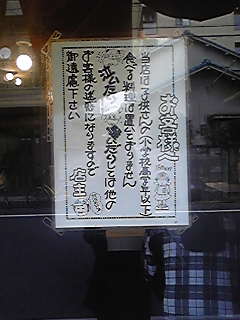 お客様へ
当店は子供さんの(小学校高学年以下)
食べる料理は置いておりません
泣いたり騒いだりしては他の
お客様の迷惑になりますので
御遠慮下さい
店主